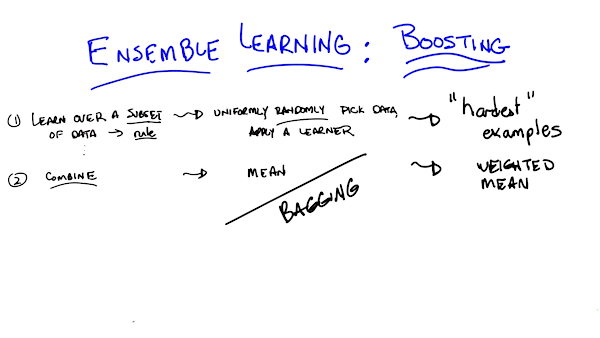 ENSEMBLE LEARNING: BOOSTING
(1) LEARN OVER A SUBSET OF DATA → rule
UNIFORMLY RANDOMLY PICK DATA, APPLY A LEARNER
"hardest" examples
(2) COMBINE
MEAN
WEIGHTED MEAN
BAGGING